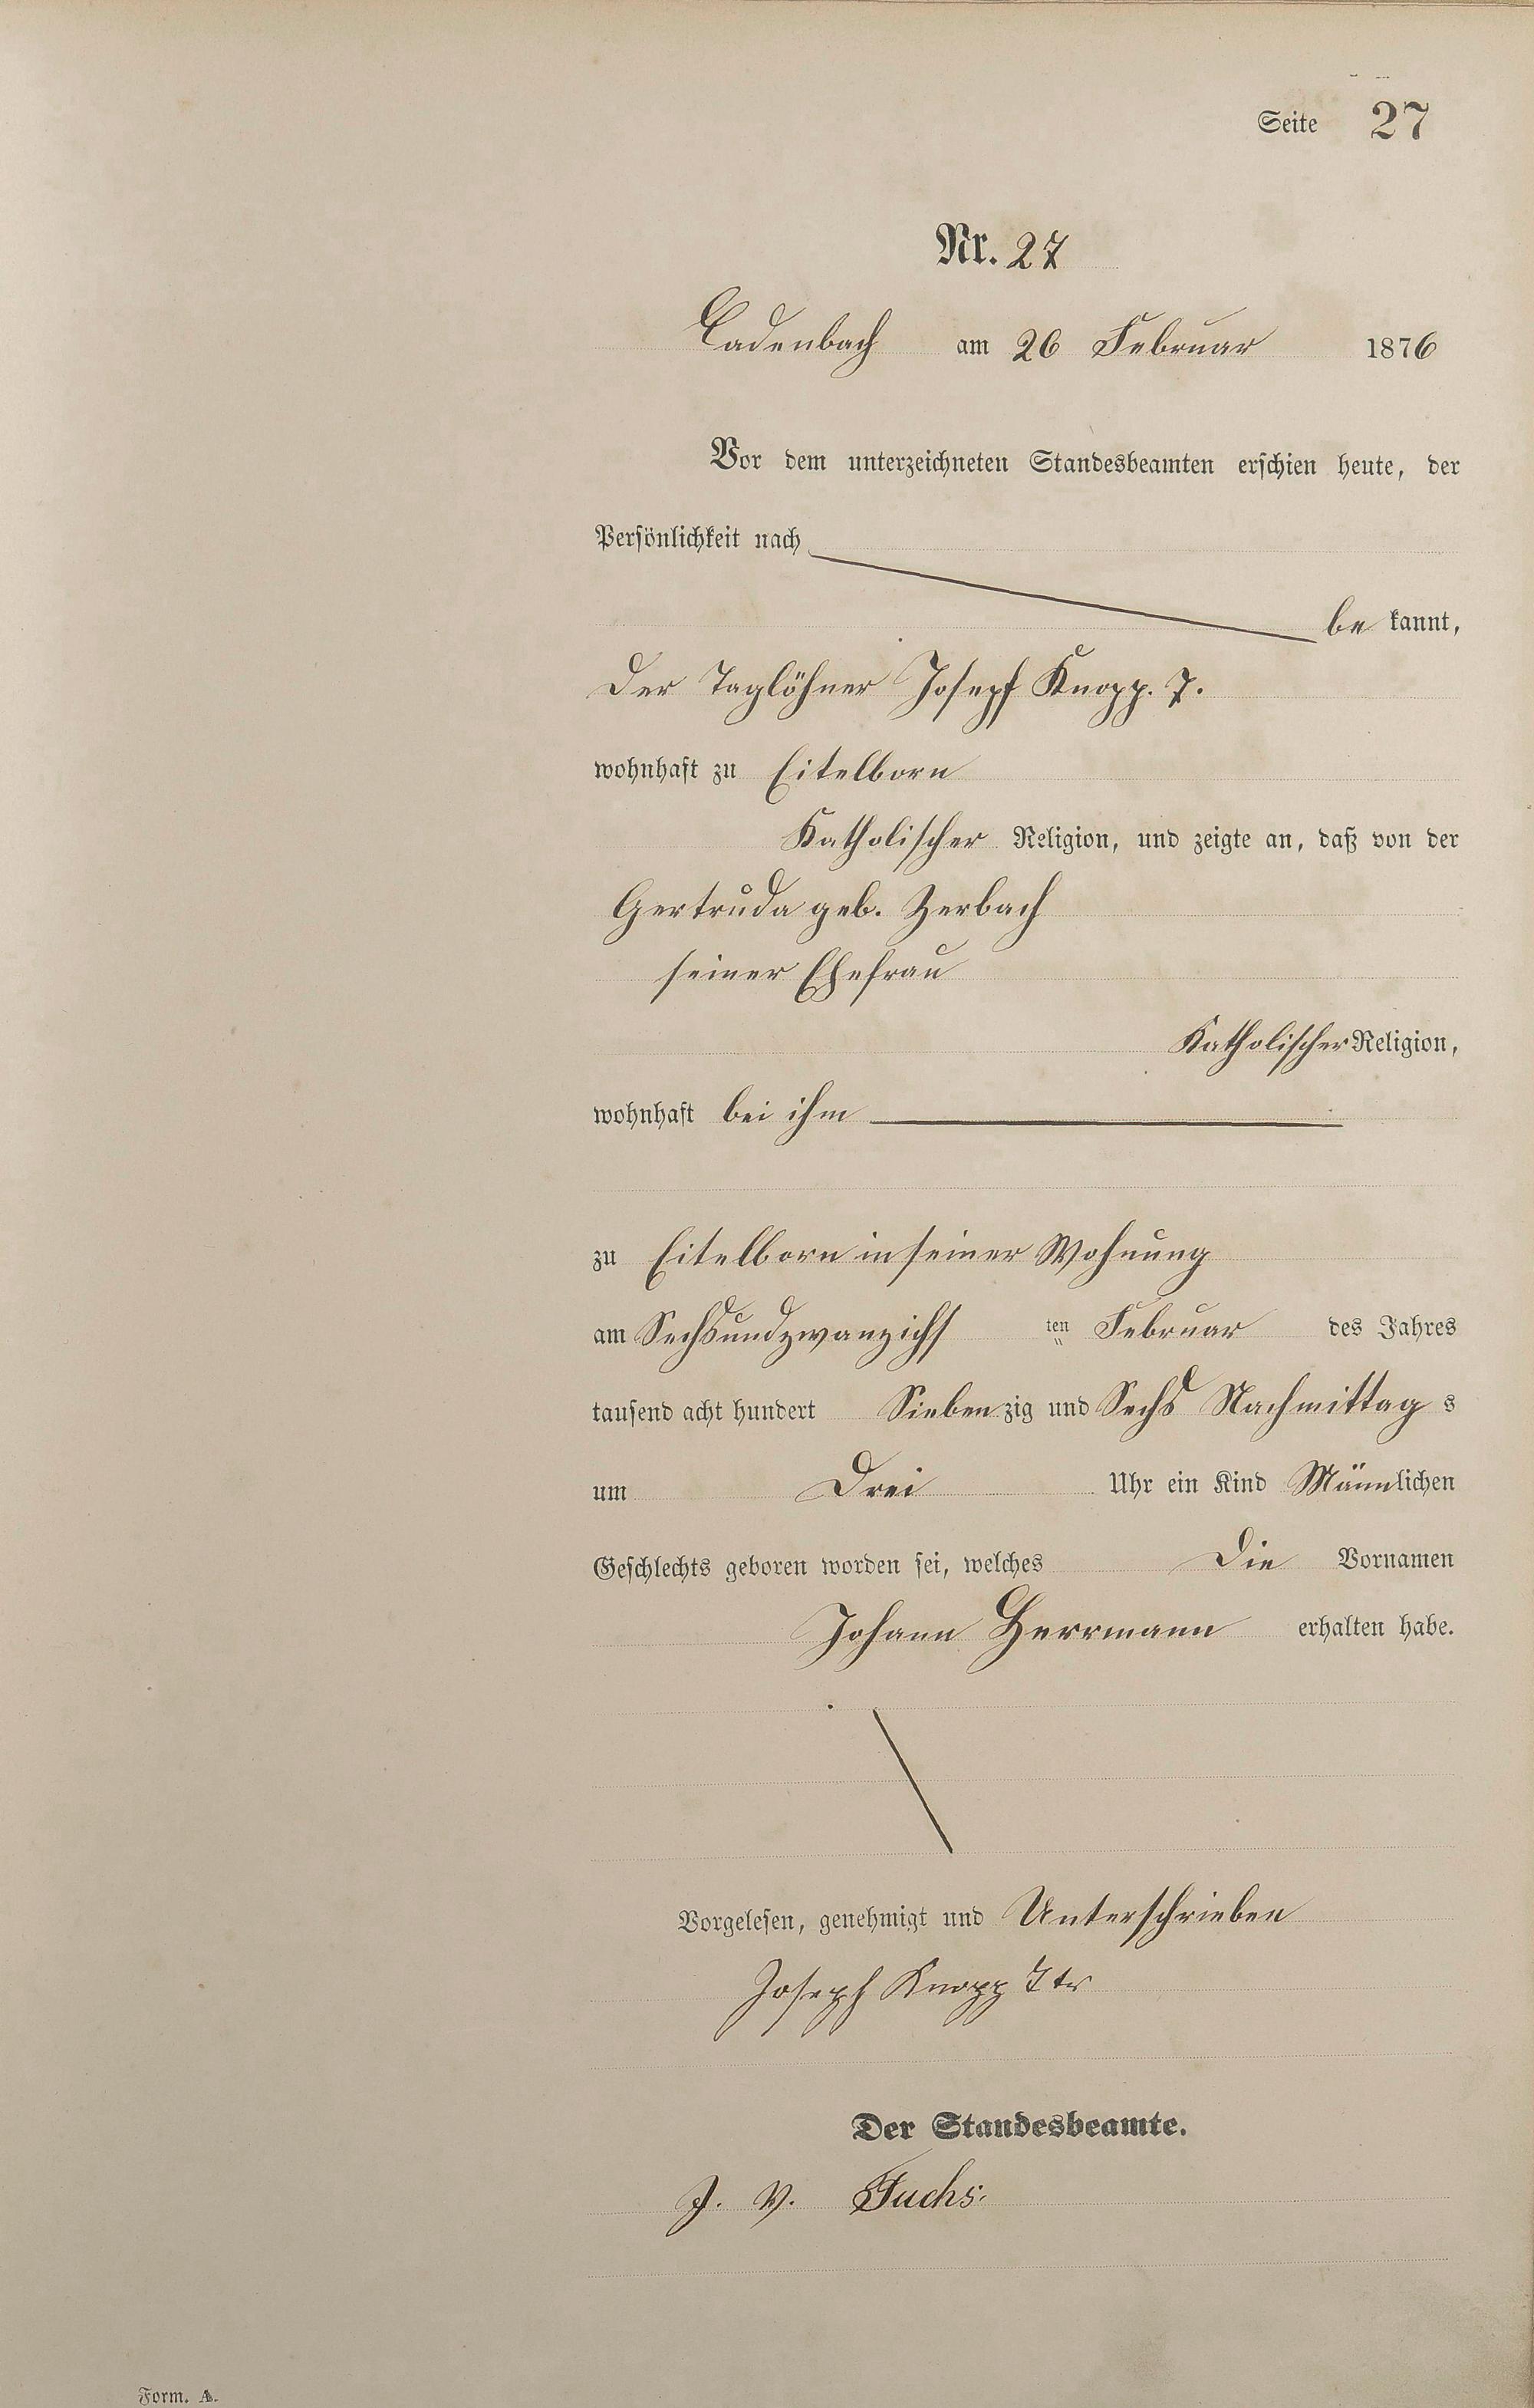 Seite 27
Nr. 27
Cadenbach am 26 Februar 1876
Vor dem unterzeichneten Standesbeamten erschien heute, der
Persönlichkeit nach
be kannt,
Der Taglöhner Josepf Knopp. 7.
wohnhaft zu Eitelborn
Katholischer Religion, und zeigte an, daß von der
Gertruda geb. Zerbach
seiner Ehefrau
Katholischer Religion,
wohnhaft bei ihm
zu Eitelborn in seiner Wohnung
am Sechsundzwanzichs ten Februar des Jahres
tausend acht hundert Sieben zig und Sechs Nachmittag s
um Drei Uhr ein Kind Männlichen
Geschlechts geboren worden sei, welches Die Vornamen
Johann Herrmann erhalten habe.
Vorgelesen, genehmigt und Unterschrieben
Joseph Knopp 7 tr
Der Standesbeamte.
J. V. Fuchs.
Form. A.